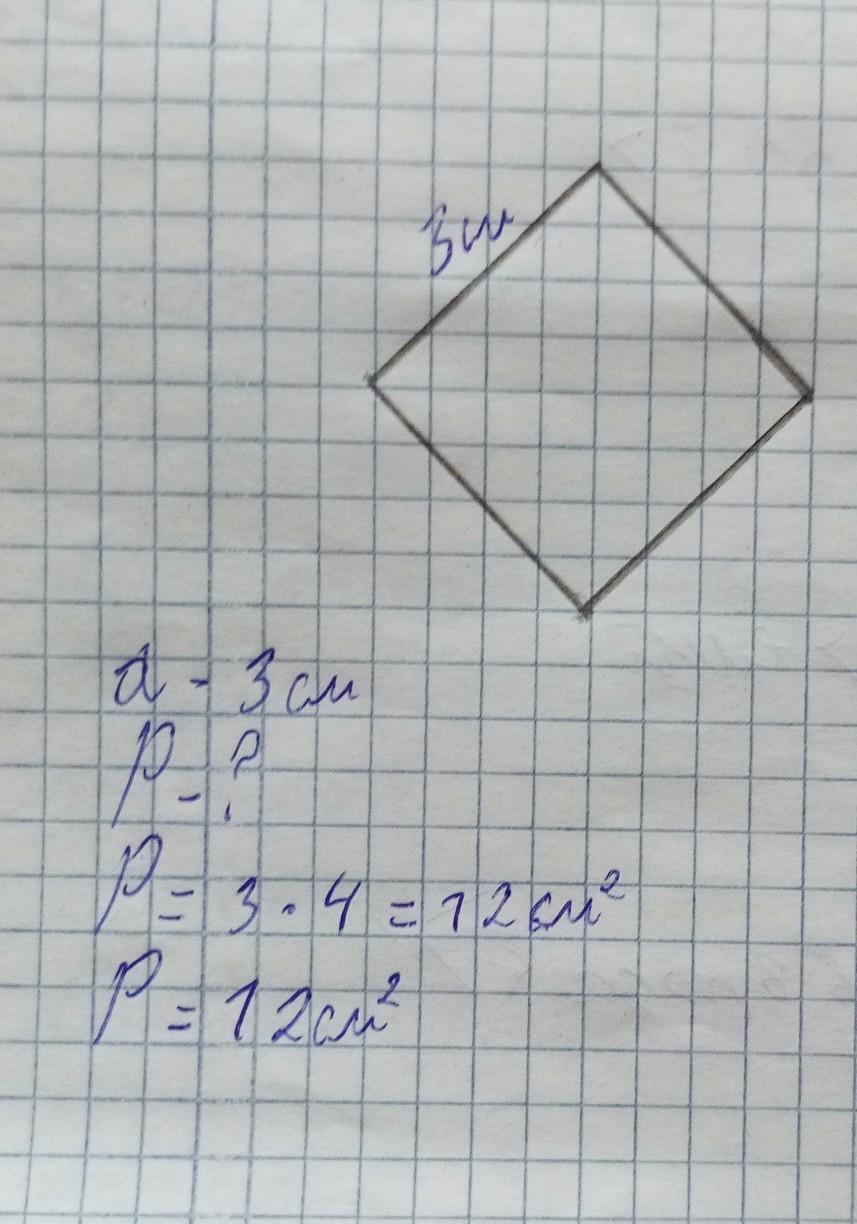 3 см
a - 3 см
P - ?
P = 3 · 4 = 12 см²
P = 12 см²